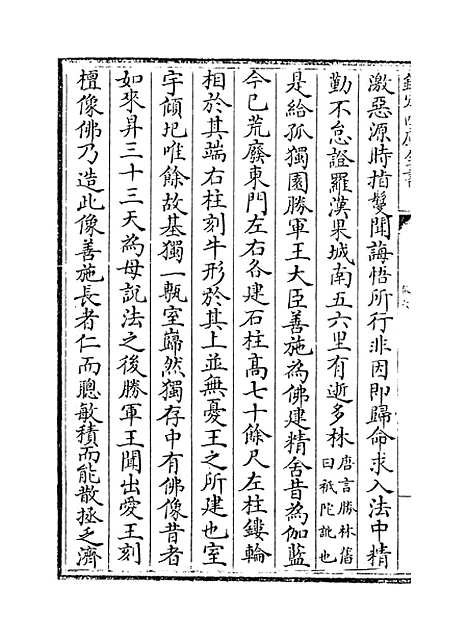 欽定四庫全書
激惡源時指鬘聞誨悟所行非因即歸命求入法中精
勤不怠證羅漢果城南五六里有逝多林唐言勝林舊曰祇陀訛也
是給孤獨園勝軍王大臣善施為佛建精舍昔為伽藍
今已荒廢東門左右各建石柱髙七十餘尺左柱鏤輪
相於其端右柱刻牛形於其上並無憂王之所建也室
宇傾圮唯餘故基獨一甎室巋然獨存中有佛像昔者
如來昇三十三天為母說法之後勝軍王聞出愛王刻
檀像佛乃造此像善施長者仁而聰敏積而能散拯乏濟